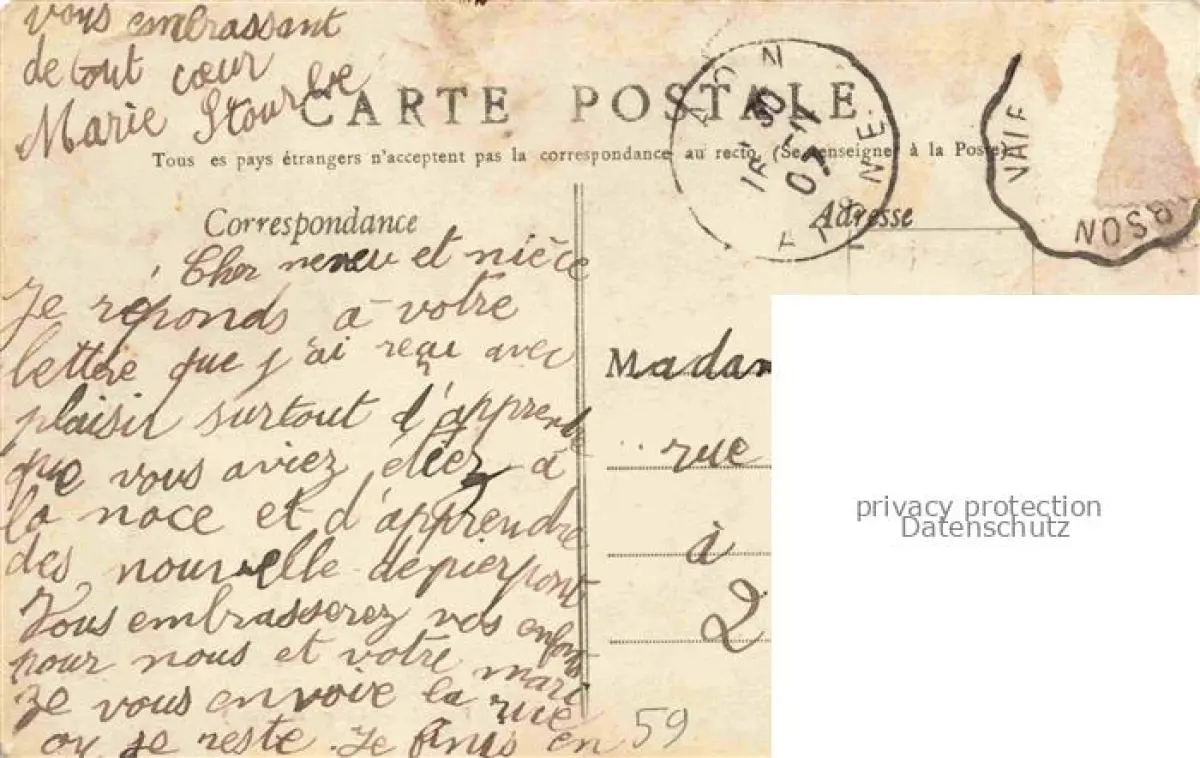 vous embrassant
de tout cœur
Marie Stourbe
CARTE POSTALE
Tous es pays étrangers n'acceptent pas la correspondance au recto. (Se renseigner à la Poste)
Correspondance
Adresse
Cher neveu et nièce
Je réponds a votre
lettre que j'ai reçu avec
plaisir surtout d'apprendre
que vous aviez étiez a
la noce et d'apprendre
des nouvelle de pierpont
Vous embrasserez vos enfants
pour nous et votre mari
Je vous envoie la rue
ou je reste. Je finis en
Madam
rue
à
59
LAON
AISNE
30
07
privacy protection
Datenschutz